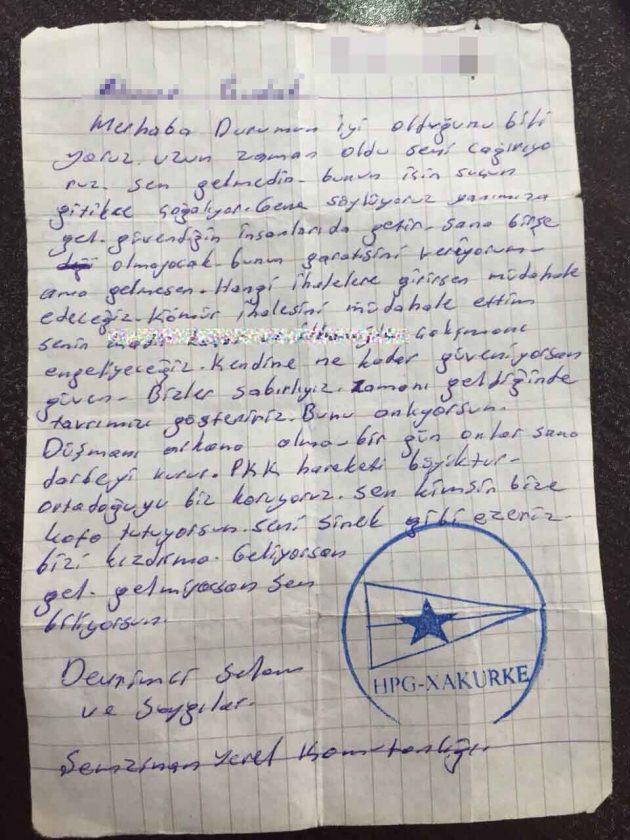 Merhaba Durumun iyi olduğunu bili
yoruz. uzun zaman oldu seni çağırıyo
ruz. sen gelmedin. bunun için suçun
gitikçe çoğalıyor. Gene söylüyoruz yanımıza
gel. güvendiğin insanlarıda getir. sana birşe
olmayacak. bunun garatisini veriyorum-
ama gelmesen. Hangi ihalelere girirsen müdahale
edeceğiz. Kömür ihalesini müdahale ettim
senin çalışmanı
engeliyeceğiz. Kendine ne kadar güveniyorsan
güven. Bizler sabırlıyız. zamanı geldiğinde
tavrımızı gösteririz. Bunu anlıyorsun.
Düşmanı arkana alma. bir gün onlar sana
darbeyi vurur. PKK hareketi böyüktür-
ortadoğuyu biz koruyoruz. sen kimsin bize
kafa tutuyorsun. seni sinek gibi ezeriz-
bizi kızdırma. Geliyorsan
gel. gelmiyorsan sen
biliyorsun.
HPG-XAKURKE
Devrimci Selam
ve Saygılar.